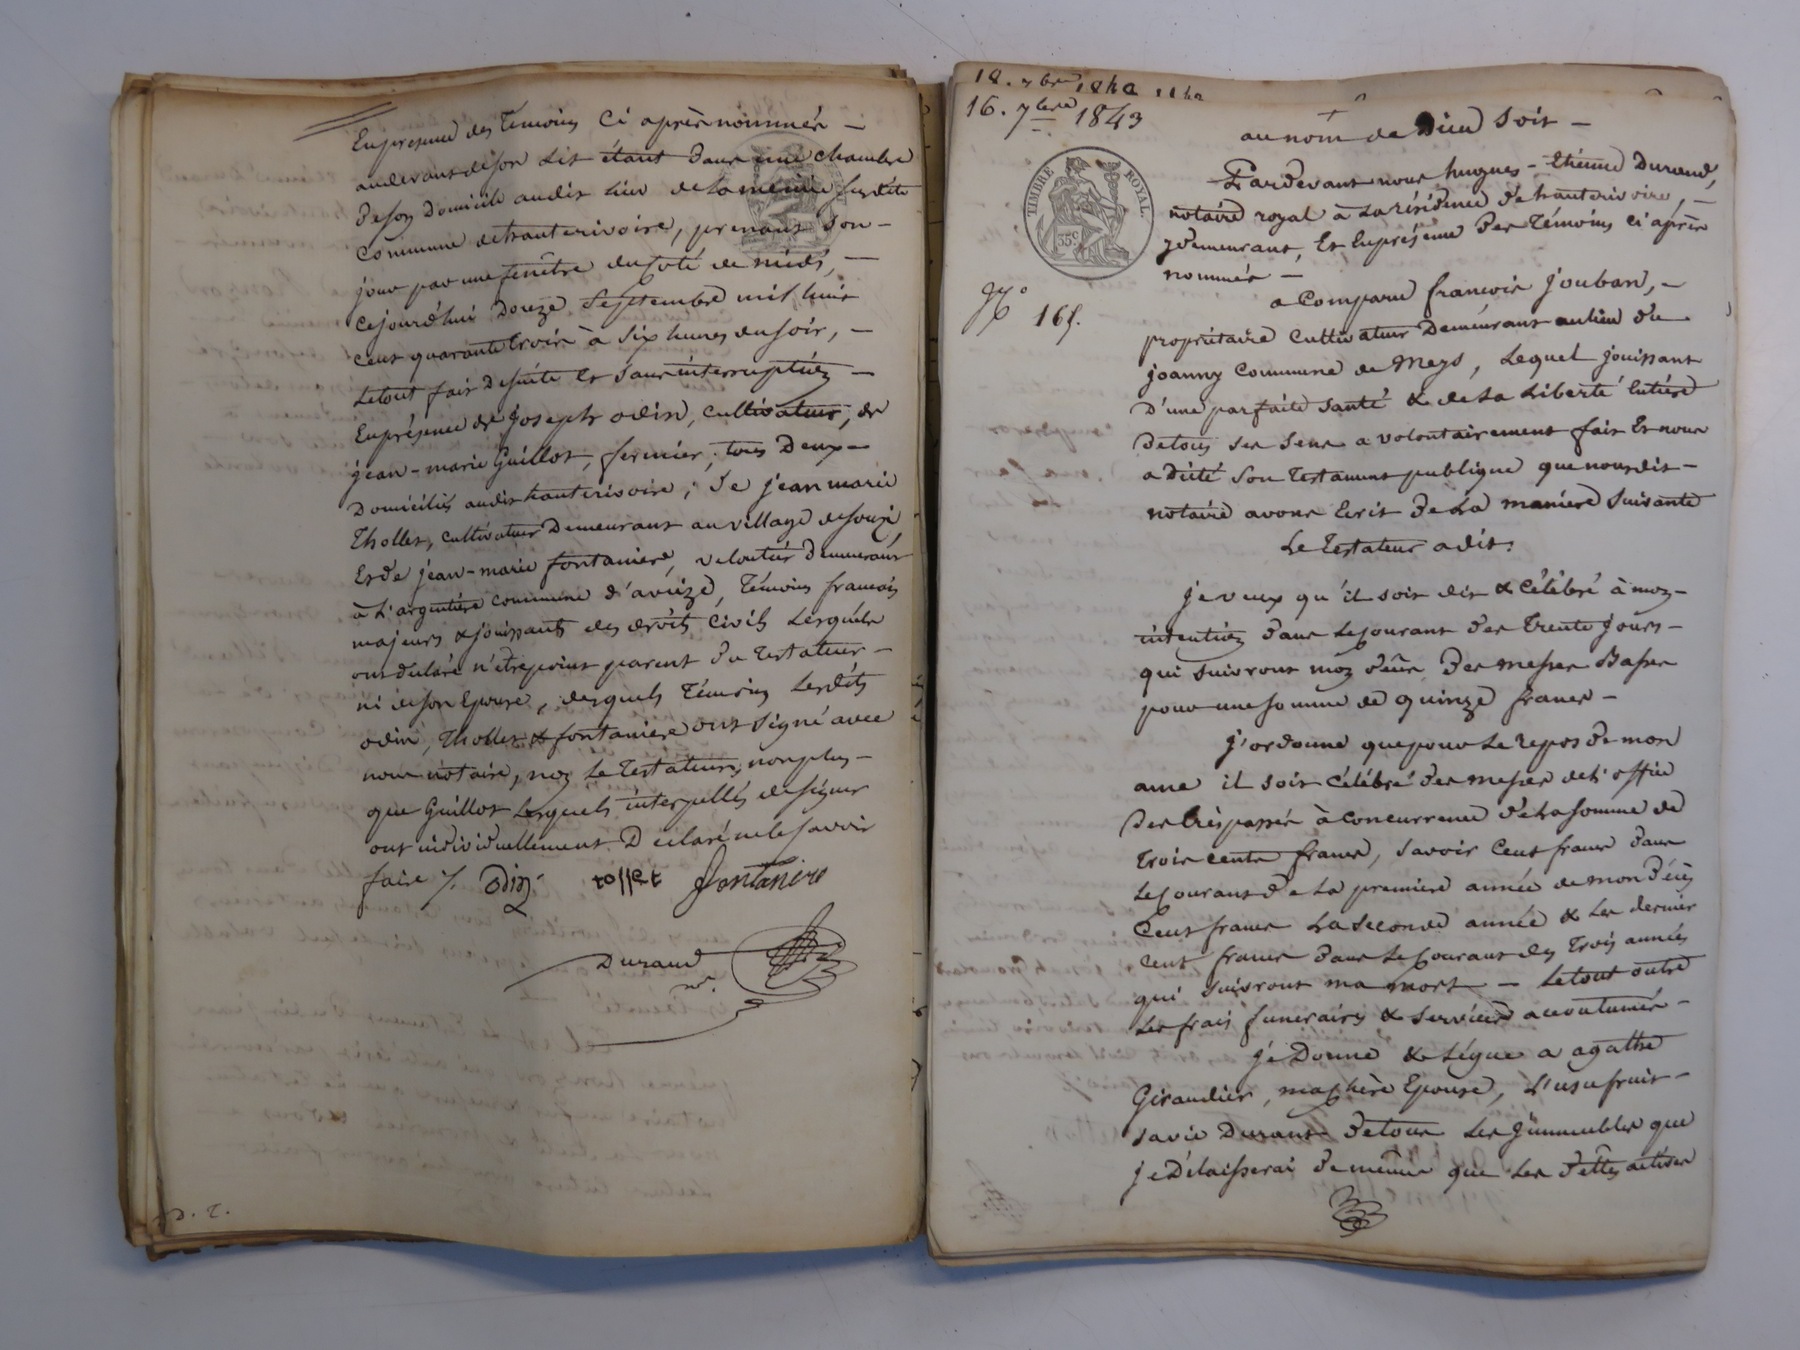 En presence des Temoins ci après nommés —
au devant de son lit étant dans une chambre
de son Domicile au dit lieu de la même susdite
Commune de hauterivoire, prenant son —
jour par une fenêtre du coté de midi, —
Cejourd'hui Douze Septembre mil huit
cent quarante trois à six heures du soir, —
Le tout fait de suite et sans interruption —
En présence de Joseph odin, cultivateur, de
jean-marie Guillot, fermier, tous Deux —
Domiciliés au dit hauterivoire, De jean marie
Thollet, cultivateur Demeurant au village de souzi,
Et de jean-marie fontaniere, veloutier Demeurant
à L'argentière commune d'avèize, Témoins francais
majeurs & jouissants des droits civils Lesquels
ont déclaré n'être point parent du Testateur —
ni de son Epouse, desquels Témoins Lesdits
odin, Thollet & fontaniere ont signé avec
nous notaire, non le Testateur, non plus —
que Guillot Lesquels interpellés de signer
ont individuellement Declaré ne le savoir
faire ⁒ Odin tollet fontaniere
Durand
nre
D. T.
18. 7bre 1842 1842
16. 7bre 1843
au nom de Dieu soit —
TIMBRE ROYAL.
35c
Pardevant nous hugues - Etienne Durand,
notaire royal à la résidence de hauterivoire, —
y demeurant, Et En présence des Témoins ci après
nommés —
No 165.
a Comparu francois Jouban, —
propriétaire cultivateur Demeurant au lieu du
joanny commune de Meys, Lequel jouissant
D'une parfaite santé & de la Liberté Entière
de tous ses sens a volontairement fait Et nous
a Dicté son Testament publique que nous dit —
notaire avons Ecrit de la manière suivante
Le Testateur a dit:
je veux qu'il soit dit & célébré à mon —
intention dans le courant des trente jours —
qui suivront mon décès Des messes Basses
pour une somme de quinze francs —
j'ordonne que pour le repos de mon
ame il soit célébré des messes de l'office
Des trépassés à concurrence de la somme de
trois cents francs, savoir Cent francs dans
le courant de la première année de mon décès
Cent francs la seconde année & les dernier
cent francs dans le courant des trois années
qui suivront ma mort — Le tout outre
les frais funeraires & services accoutumés —
je Donne & Lègue a agathe
Giraudier, ma chère Epouse, L'usufruit —
sa vie Durant de tous les jmmeubles que
je Délaisserai de même que les dettes actives